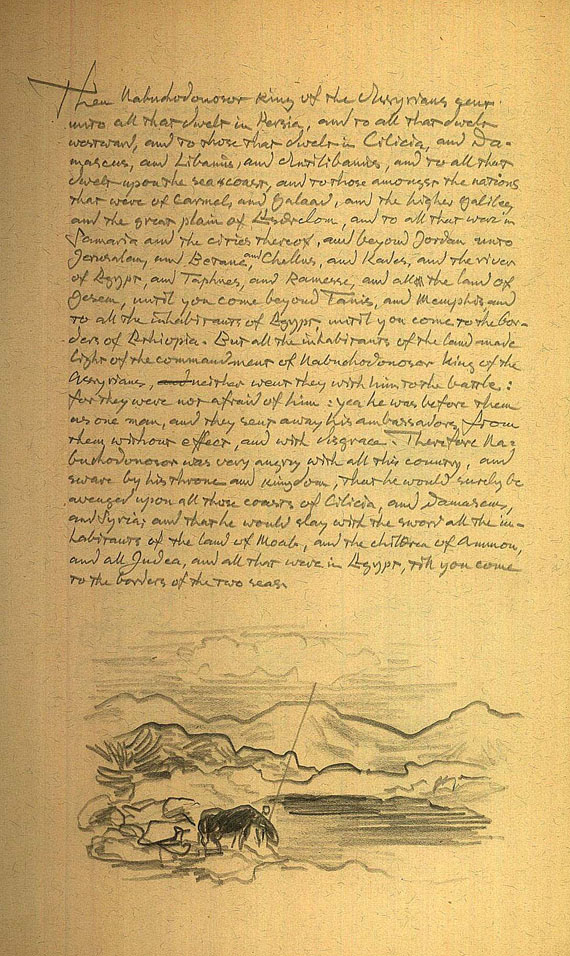 Then Nabuchodonosor King of the Assyrians sent
unto all that dwelt in Persia, and to all that dwelt
westward, and to those that dwelt in Cilicia, and Da-
mascus, and Libanus, and Antilibanus, and to all that
dwelt upon the sea coast, and to those amongst the nations
that were of Carmel, and Galaad, and the higher Galilee,
and the great plain of Esdrelom, and to all that were in
Samaria and the cities thereof, and beyond Jordan unto
Jerusalem, and Betane, and Chellus, and Kades, and the river
of Egypt, and Taphnes, and Ramesse, and all the land of
Gesem, until you come beyond Tanis, and Memphis and
to all the inhabitants of Egypt, until you come to the bor-
ders of Ethiopia. But all the inhabitants of the land made
light of the commandment of Nabuchodonosor King of the
Assyrians, and neither went they with him to the battle:
for they were not afraid of him: yea he was before them
as one man, and they sent away his ambassadors from
them without effect, and with disgrace. Therefore Na-
buchodonosor was very angry with all this country, and
sware by his throne and kingdom, that he would surely be
avenged upon all those coasts of Cilicia, and Damascus,
and Syria, and that he would slay with the sword all the in-
habitants of the land of Moab, and the children of Ammon,
and all Judea, and all that were in Egypt, till you come
to the borders of the two seas.